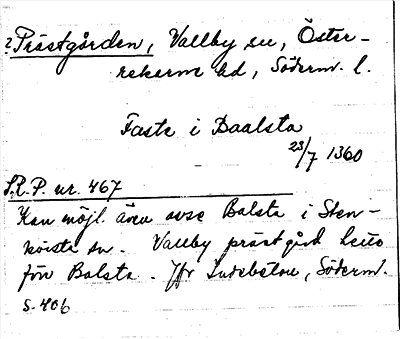 ? Prästgården, Vallby sn, Öster-
rekarne hd, Söderm. l.
Faste i Baalsta
23/7 1360
S.R.P. nr. 467
Kan möjl. även avse Balsta i Sten-
kvista sn. Vallby prästgård
förr Balsta. Jfr Södermf.
s. 406